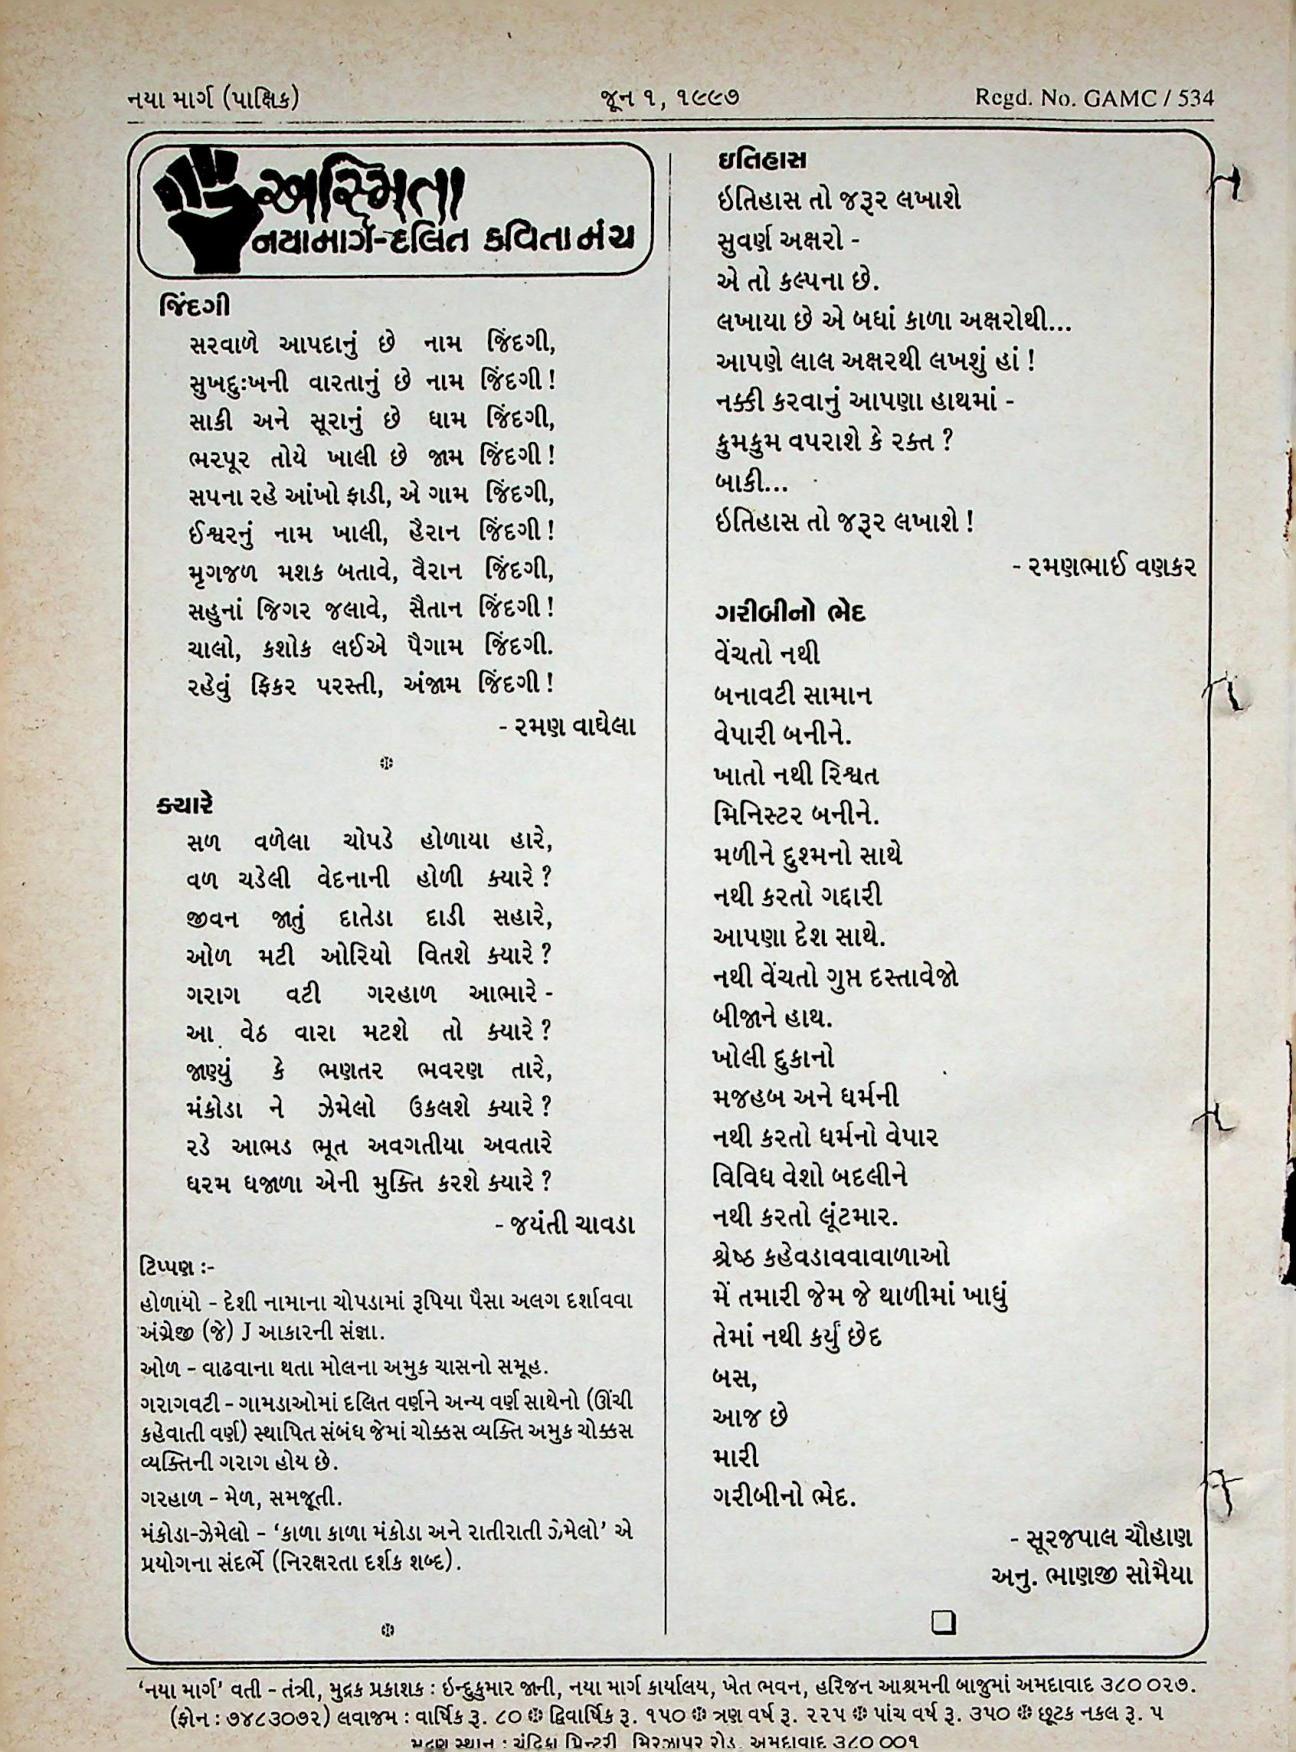 નયા માર્ગ (પાક્ષિક) જૂન ૧, ૧૯૯૭ Regd. No. GAMC / 534
અસ્મિતા
નયામાર્ગ-દલિત કવિતા મંચ
જિંદગી
સરવાળે આપદાનું છે નામ જિંદગી,
સુખદુઃખની વારતાનું છે નામ જિંદગી !
સાકી અને સૂરાનું છે ધામ જિંદગી,
ભરપૂર તોયે ખાલી છે જામ જિંદગી !
સપના રહે આંખો ફાડી, એ ગામ જિંદગી,
ઈશ્વરનું નામ ખાલી, હૈરાન જિંદગી !
મૃગજળ મશક બતાવે, વૈરાન જિંદગી,
સહુનાં જિગર જલાવે, સૈતાન જિંદગી !
ચાલો, કશોક લઈએ પૈગામ જિંદગી.
રહેવું ફિકર પરસ્તી, અંજામ જિંદગી !
- રમણ વાઘેલા
ક્યારે
સળ વળેલા ચોપડે હોળાયા હારે,
વળ ચડેલી વેદનાની હોળી ક્યારે ?
જીવન જાતું દાતેડા દાડી સહારે,
ઓળ મટી ઓરિયો વિતશે ક્યારે ?
ગરાગ વટી ગરહાળ આભારે -
આ વેઠ વારા મટશે તો ક્યારે ?
જાણ્યું કે ભણતર ભવરણ તારે,
મંકોડા ને ઝેમેલો ઉકલશે ક્યારે ?
રડે આભડ ભૂત અવગતીયા અવતારે
ધરમ ધજાળા એની મુક્તિ કરશે ક્યારે ?
- જયંતી ચાવડા
ટિપ્પણ :-
હોળાયો – દેશી નામાના ચોપડામાં રૂપિયા પૈસા અલગ દર્શાવવા
અંગ્રેજી (જે) J આકારની સંજ્ઞા.
ઓળ – વાઢવાના થતા મોલના અમુક ચાસનો સમૂહ.
ગરાગવટી – ગામડાઓમાં દલિત વર્ણને અન્ય વર્ણ સાથેનો (ઊંચી
કહેવાતી વર્ણ) સ્થાપિત સંબંધ જેમાં ચોક્કસ વ્યક્તિ અમુક ચોક્કસ
વ્યક્તિની ગરાગ હોય છે.
ગરહાળ – મેળ, સમજૂતી.
મંકોડા-ઝેમેલો – ‘કાળા કાળા મંકોડા અને રાતીરાતી ઝેમેલો’ એ
પ્રયોગના સંદર્ભે (નિરક્ષરતા દર્શક શબ્દ).
ઇતિહાસ
ઇતિહાસ તો જરૂર લખાશે
સુવર્ણ અક્ષરો -
એ તો કલ્પના છે.
લખાયા છે એ બધાં કાળા અક્ષરોથી...
આપણે લાલ અક્ષરથી લખશું હાં !
નક્કી કરવાનું આપણા હાથમાં -
કુમકુમ વપરાશે કે રક્ત ?
બાકી...
ઇતિહાસ તો જરૂર લખાશે !
- રમણભાઈ વણકર
ગરીબીનો ભેદ
વેંચતો નથી
બનાવટી સામાન
વેપારી બનીને.
ખાતો નથી રિશ્વત
મિનિસ્ટર બનીને.
મળીને દુશ્મનો સાથે
નથી કરતો ગદ્દારી
આપણા દેશ સાથે.
નથી વેંચતો ગુપ્ત દસ્તાવેજો
બીજાને હાથ.
ખોલી દુકાનો
મજહબ અને ધર્મની
નથી કરતો ધર્મનો વેપાર
વિવિધ વેશો બદલીને
નથી કરતો લૂંટમાર.
શ્રેષ્ઠ કહેવડાવવાવાળાઓ
મેં તમારી જેમ જે થાળીમાં ખાધું
તેમાં નથી કર્યું છેદ
બસ,
આજ છે
મારી
ગરીબીનો ભેદ.
- સૂરજપાલ ચૌહાણ
અનુ. ભાણજી સોમૈયા
‘નયા માર્ગ’ વતી – તંત્રી, મુદ્રક પ્રકાશક : ઇન્દુકુમાર જાની, નયા માર્ગ કાર્યાલય, ખેત ભવન, હરિજન આશ્રમની બાજુમાં અમદાવાદ ૩૮૦ ૦૨૭.
(ફોન : ૭૪૮૩૦૭૨) લવાજમ : વાર્ષિક રૂ. ૮૦ ❉ દ્વિવાર્ષિક રૂ. ૧૫૦ ❉ ત્રણ વર્ષ રૂ. ૨૨૫ ❉ પાંચ વર્ષ રૂ. ૩૫૦ ❉ છૂટક નકલ રૂ. ૫
મુદ્રણ સ્થાન : ચંદ્રિકા પ્રિન્ટરી, મિરઝાપર રોડ, અમદાવાદ ૩૮૦ ૦૦૧